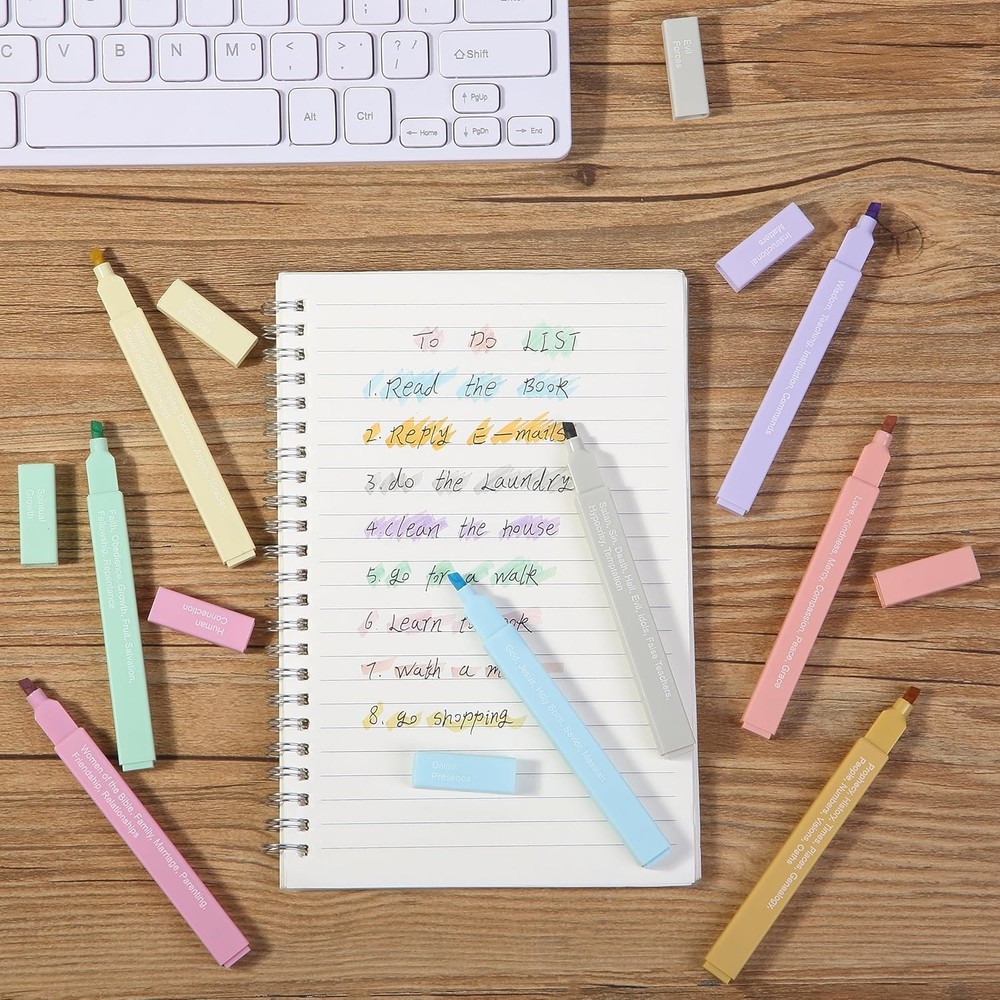 C V B N M 0 < , > . ? / Shift
Alt Ctrl PgUp
Home PgDn End
Evil
Forces
Instructional
Matters
Wisdom, Teaching, Instruction, Commands
To Do LIST
1. Read the Book
2. Reply E-mails
3. do the Laundry
4. clean the house
5. go for a walk
6. Learn
7. Wath a m
8. go shopping
Satan, Sin, Death, Hell, Evil, Idols, False Teachers,
Hypocrisy, Temptation
God, Jesus, Holy Spirit, Savior, Messiah
Divine
Presence
Spiritual
Growth
Faith, Obedience, Growth, Fruit, Salvation,
Fellowship, Repentance
Human
Connection
Women of the Bible, Family, Marriage, Parenting,
Friendship, Relationships
Love, Kindness, Mercy, Compassion, Peace, Grace
Prophecy, History, Times, Places, Genealogy,
People, Numbers, Visions, Oaths